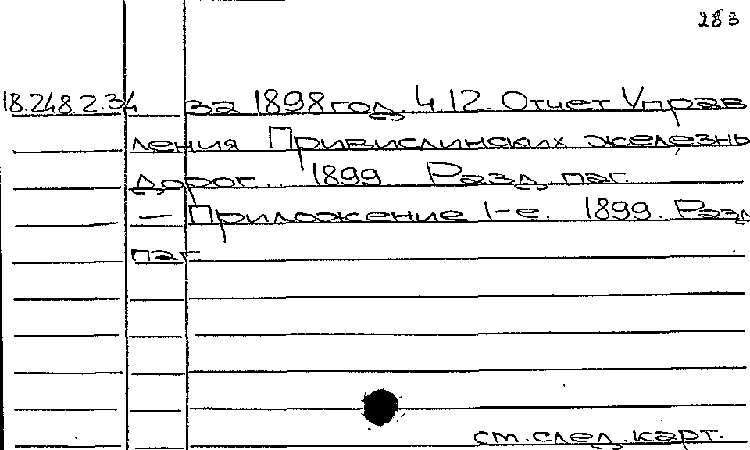 283
18.248.2.34 за 1898 год. Ч.12. Отчет Управ
ления Привислинских железны
дорог. 1899. Разд. паг.
— Приложение 1-е. 1899. Разд
паг.
см. след. карт.